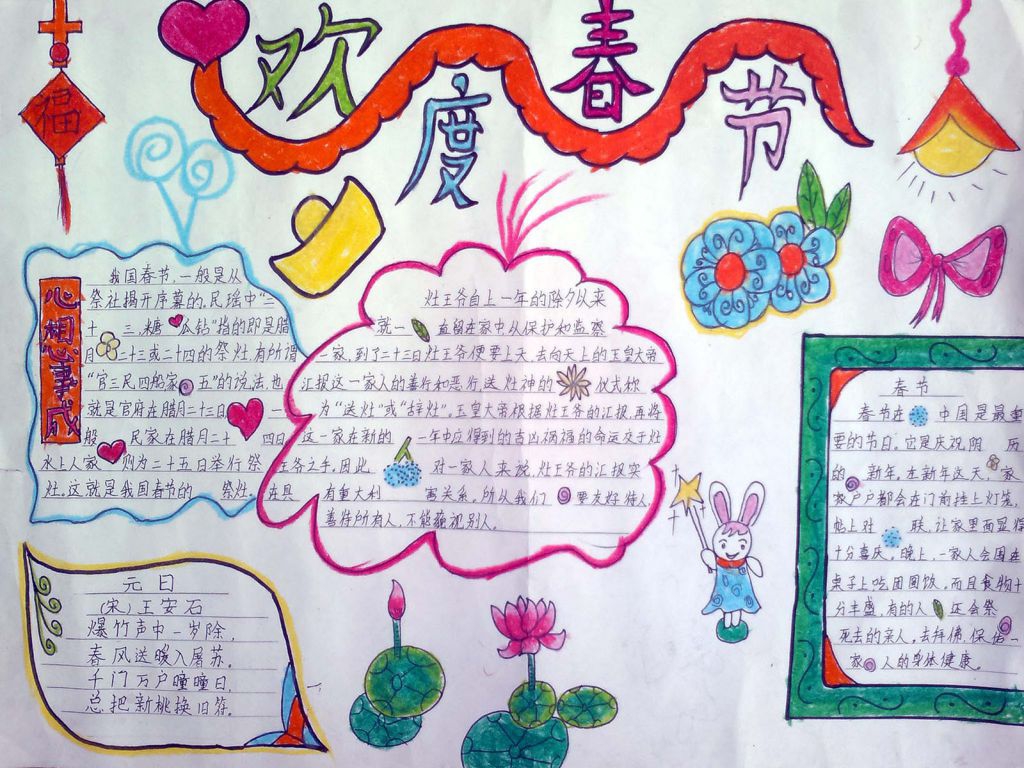 欢度春节
福
心想事成
我国春节,一般是从
祭社揭开序幕的,民瑶中“二
十三,糖瓜钻”指的即是腊
月二十三或二十四的祭灶,有所谓
“官三民四船家五”的说法,也
就是官府在腊月二十三日,一
般民家在腊月二十四日,
水上人家则为二十五日举行祭
灶,这就是我国春节的祭灶。
灶王爷自上一年的除夕以来
就一直留在家中从保护和监察
一家,到了二十三日灶王爷便要上天,去向天上的玉皇大帝
汇报这一家人的善行和恶行,送灶神的仪式称
为“送灶”或“辞灶”,玉皇大帝根据灶王爷的汇报,再将
这一家在新的一年中应得到的吉凶祸福的命运交于灶
王爷之手,因此对一家人来说,灶王爷的汇报实
在具有重大利害关系,所从我们要友好待人,
善待所有人,不能藐视别人。
春节
春节在中国是最重
要的节日。它是庆祝阴历
的新年,在新年这天,家
家户户都会在门前挂上灯笼,
帖上对联,让家里面显得
十分喜庆。晚上,一家人会围在
桌子上吃团圆饭,而且食物十
分丰盛,有的人还会祭
死去的亲人,去拜佛,保佑一
家人的身体健康。
元日
(宋)王安石
爆竹声中一岁除,
春风送暖入屠苏。
千门万户曈曈日,
总把新桃换旧符。